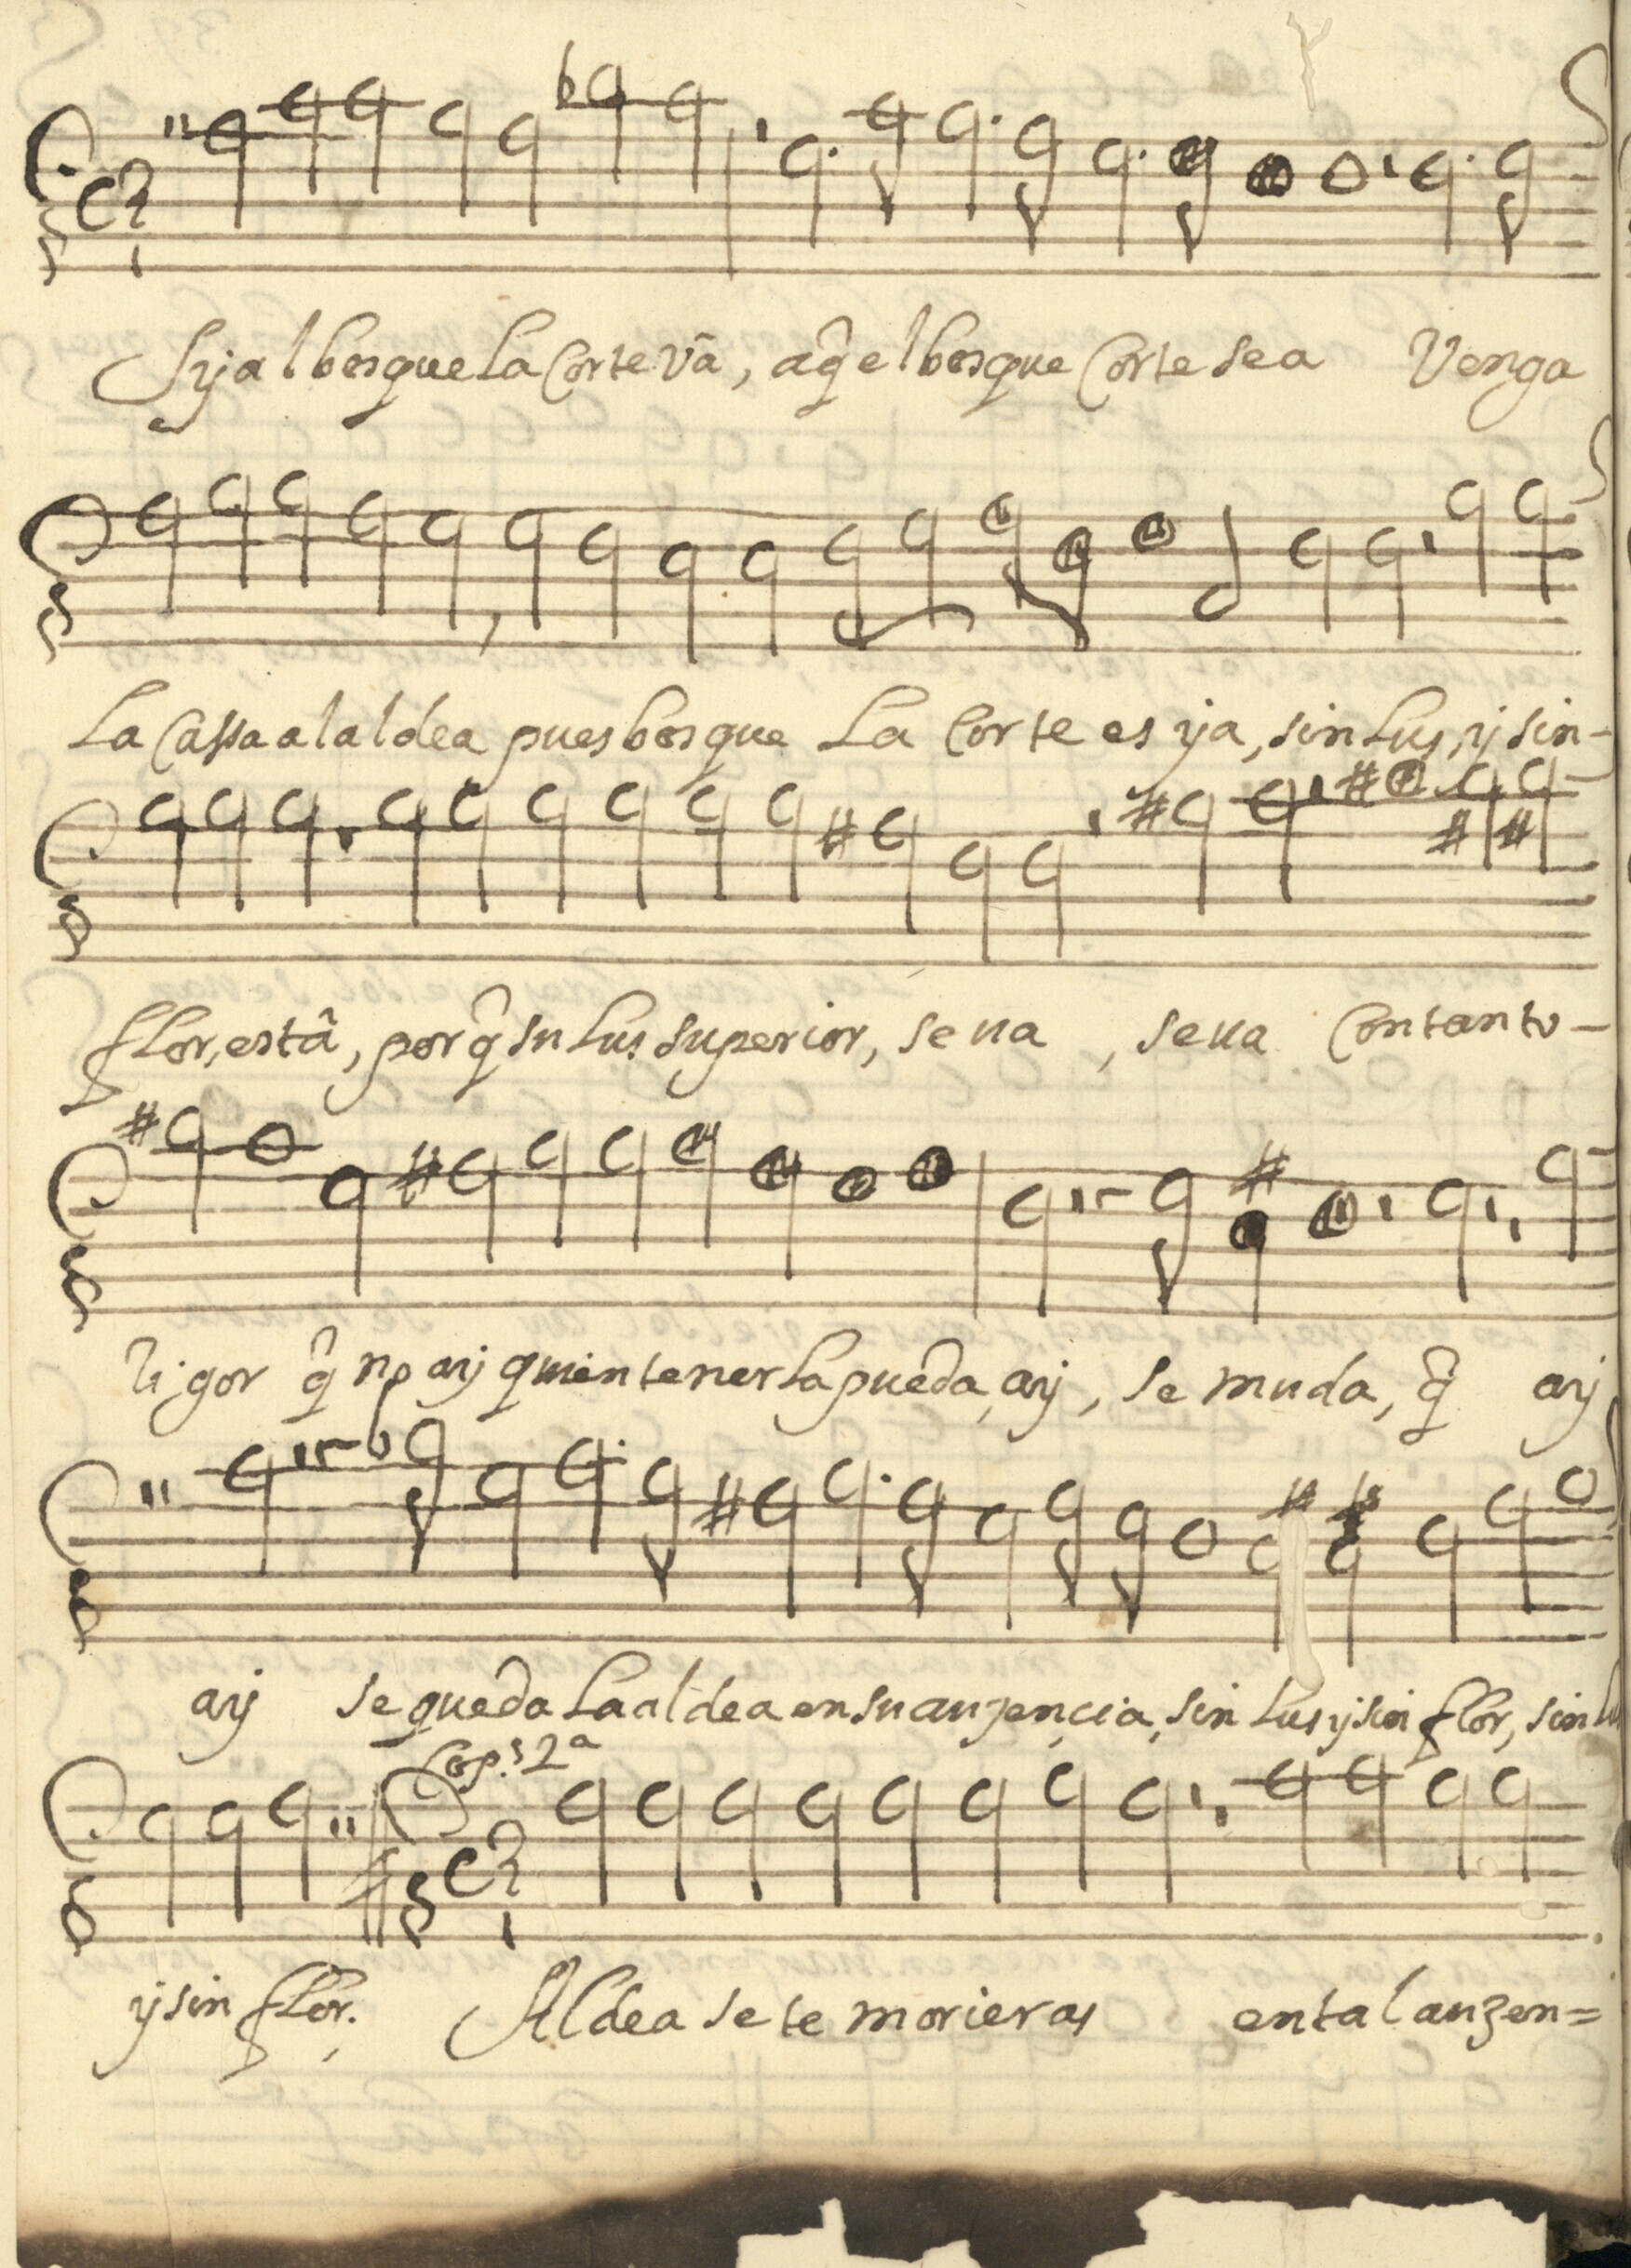 Sy al bosque la Corte vâ, a q̂ el bosque Corte sea Venga
la Cassa al aldea pues bosque la Corte es ya, sin lus, y sin-
flor, estâ, por q̂ su lus superior, se ua, se ua Con tanto-
rigor q̂ no ay quien tener la pueda, ay, se muda, q̂ ay
ay se queda la aldea en su auzençia, sin lus y sin flor, sin lu
Cop.s 2ª
y sin flor. Aldea se te morieras en tal auzen=